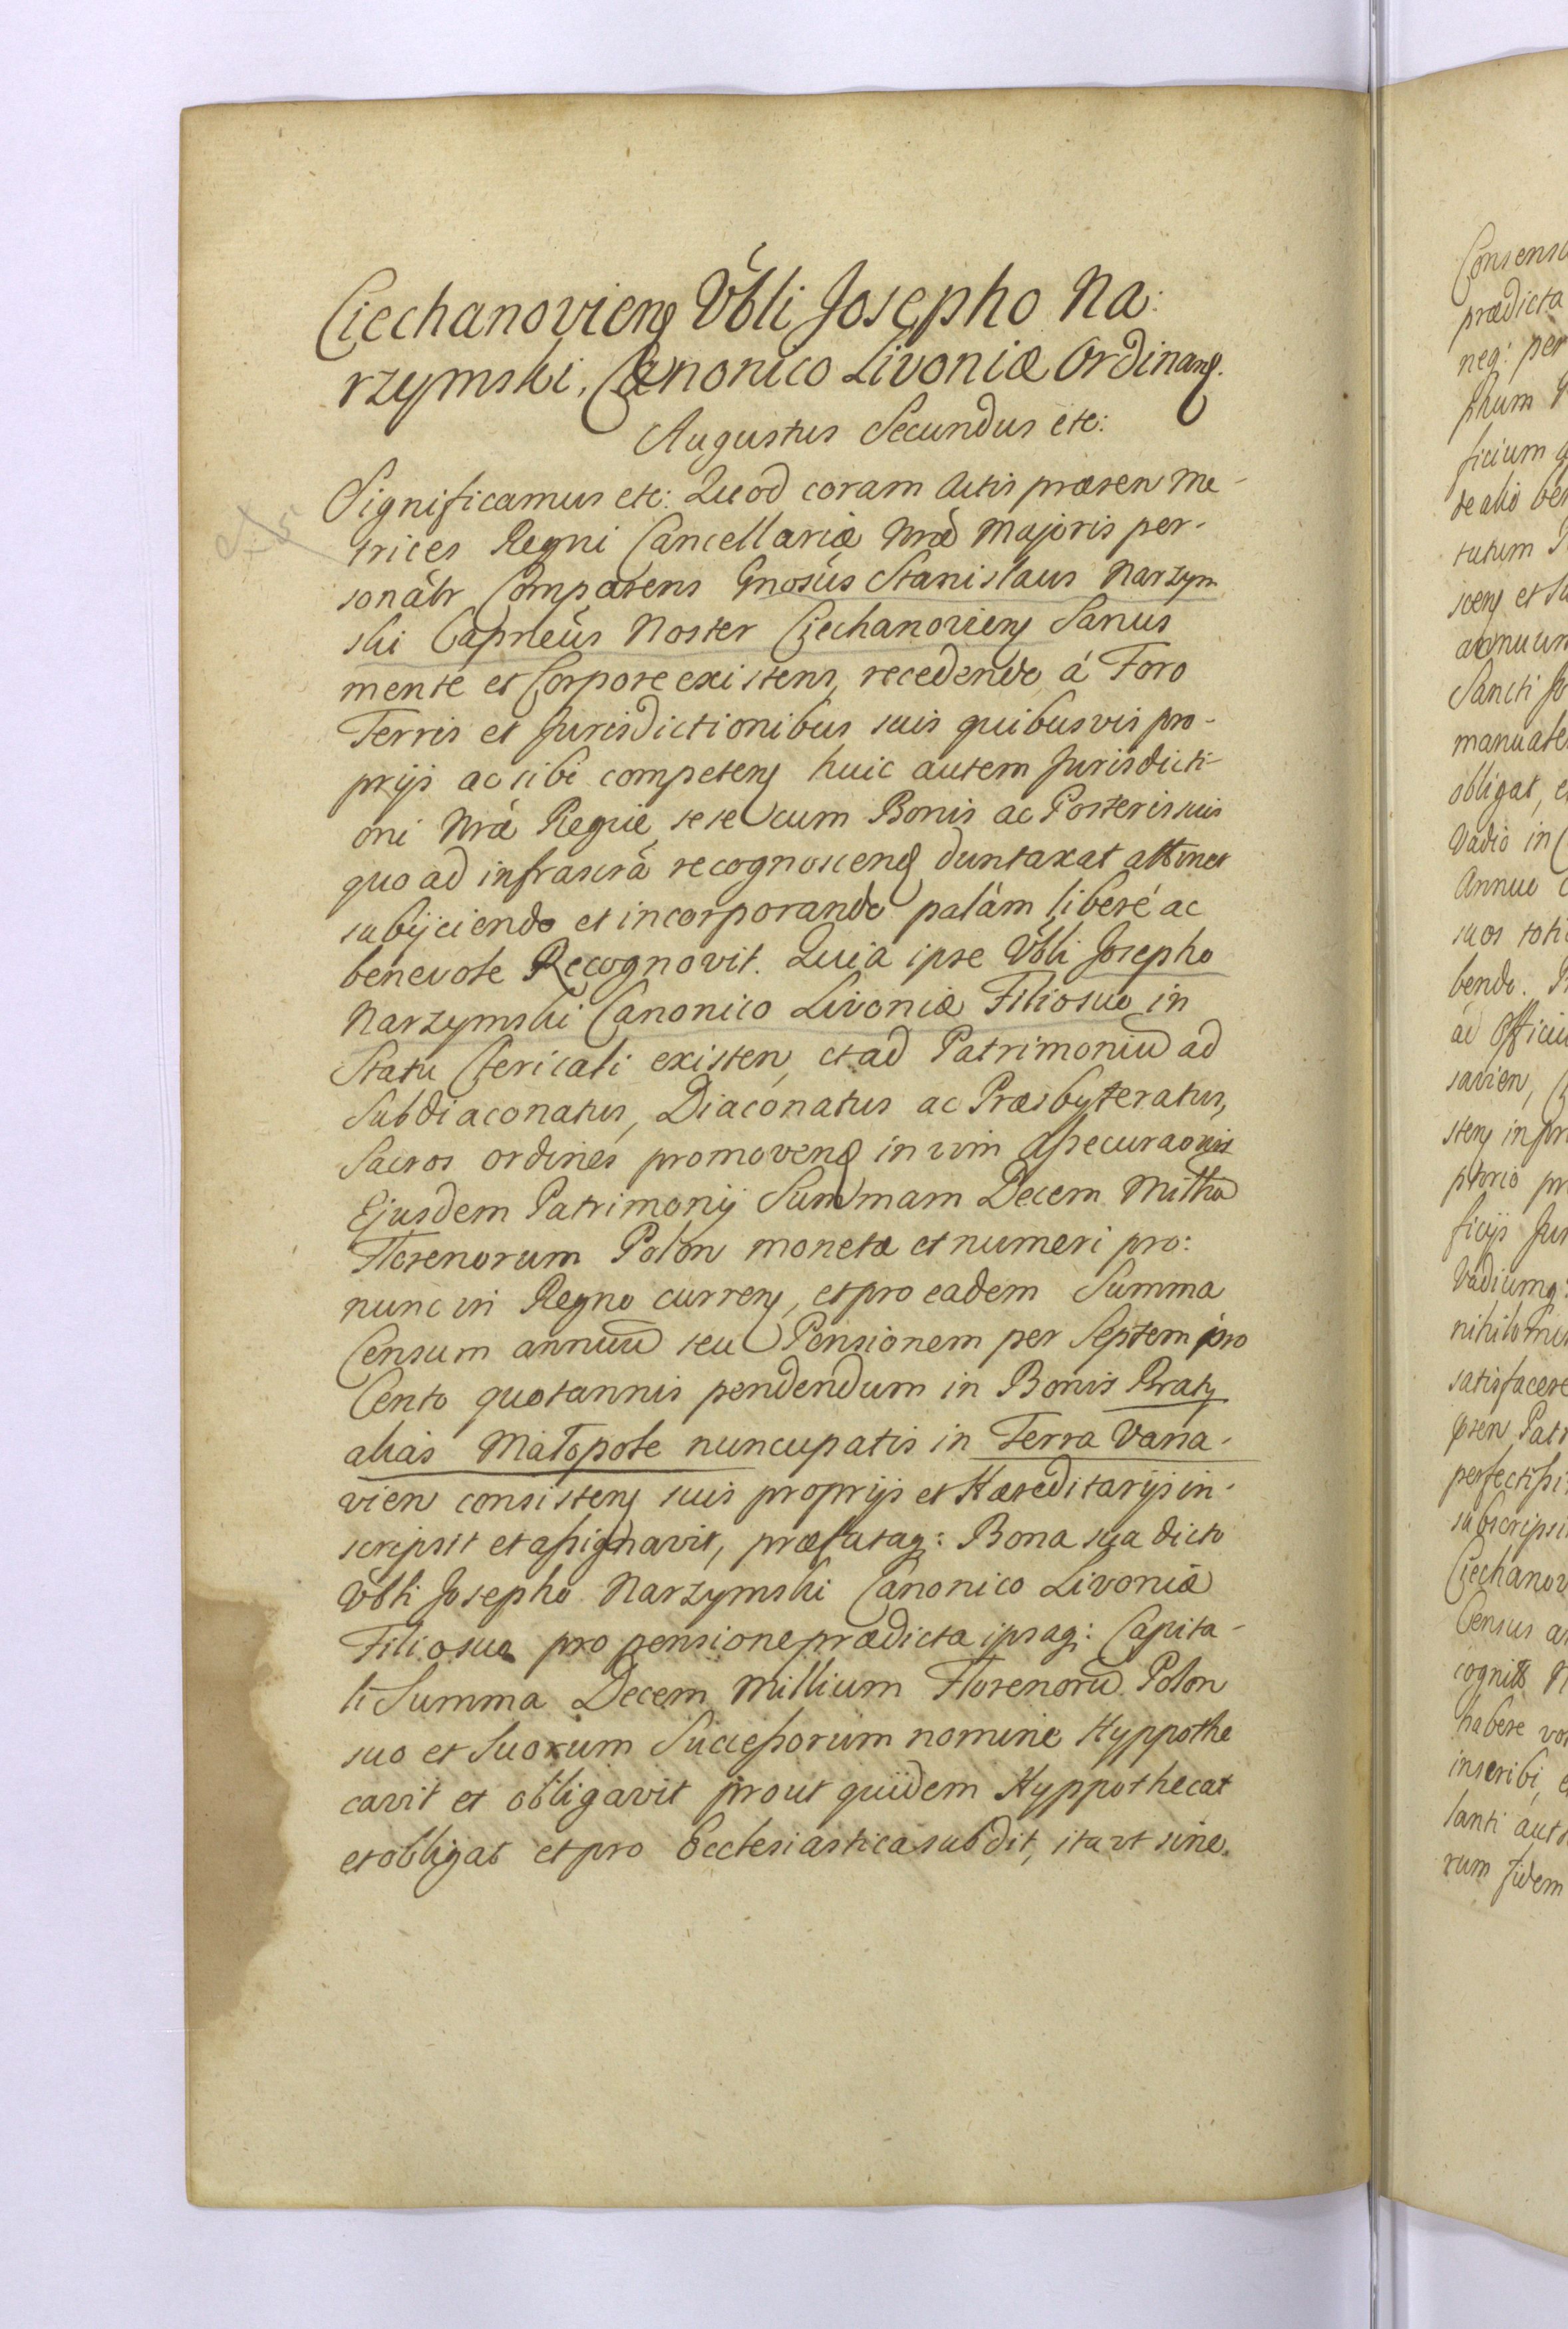 Ciechanovien Vbli Josepho Na:
rzymski, Canonico Livoniæ Ordinan.
Augustus Secundus etc:
Significamus etc: Quod coram Actis præsen Me-
trices Regni Cancellariæ Nræ Majoris per-
sonalr Comparens Gnosus Stanislaus Narzym
ski Capneus Noster Ciechanovien Sanus
mente et Corpore existens, recedendo á Foro
Terris et Jurisdictionibus suis quibusvis pro-
prijs ac sibi competen huic autem Jurisdicti-
oni Nræ Regiæ sese cum Bonis ac Posteris suis
quo ad infrascra recognoscen duntaxat attinet
subijciendo et incorporando palám liberé ac
benevole Recognovit. Quia ipse Vbli Josepho
Narzymski Canonico Livoniæ Filio suo in
Statu Clericali existen, et ad Patrimoniu ad
Subdiaconatus, Diaconatus ac Præsbyteratus,
Sacros ordines promoven in vim Assecuraonis
Ejusdem Patrimonij Summam Decem Milliu
Florenorum Polon monetæ et numeri pro:
nunc in Regno curren, et pro eadem Summa
Censum annuu seu Pensionem per Septem pro
Cento quotannis pendendum in Bonis Praty
aliás Małopole nuncupatis in Terra Varsa-
vien consisten suis proprijs et Hæreditarijs in-
scripsit et assignavit, præfataq: Bona sua dicto
Vbli Josepho Narzymski Canonico Livoniæ
Filio suo pro pensione prædicta ipsaq: Capita-
li Summa Decem Millium Florenoru Polon
suo et Suorum Successorum nomine Hyppothe
cavit et obligavit prout quidem Hyppothecat
et obligat et pro Ecclesiastica subdit, ita ut sine
Consensu
prædicta
neq: per
phum
ficium
de alio
tutum
scen et
annuum
Sancti
manuate
obligat,
Vadio in
Annuo
suos
bendo.
ac Officiu
savien,
sten in
ptorio
ficij
Vadiumq:
nihilominus
satisfacere
Patri
perfectissi
subscripsi
Ciechanov
Census
cognitis
habere
inscribi,
lanti aut
rum fidem